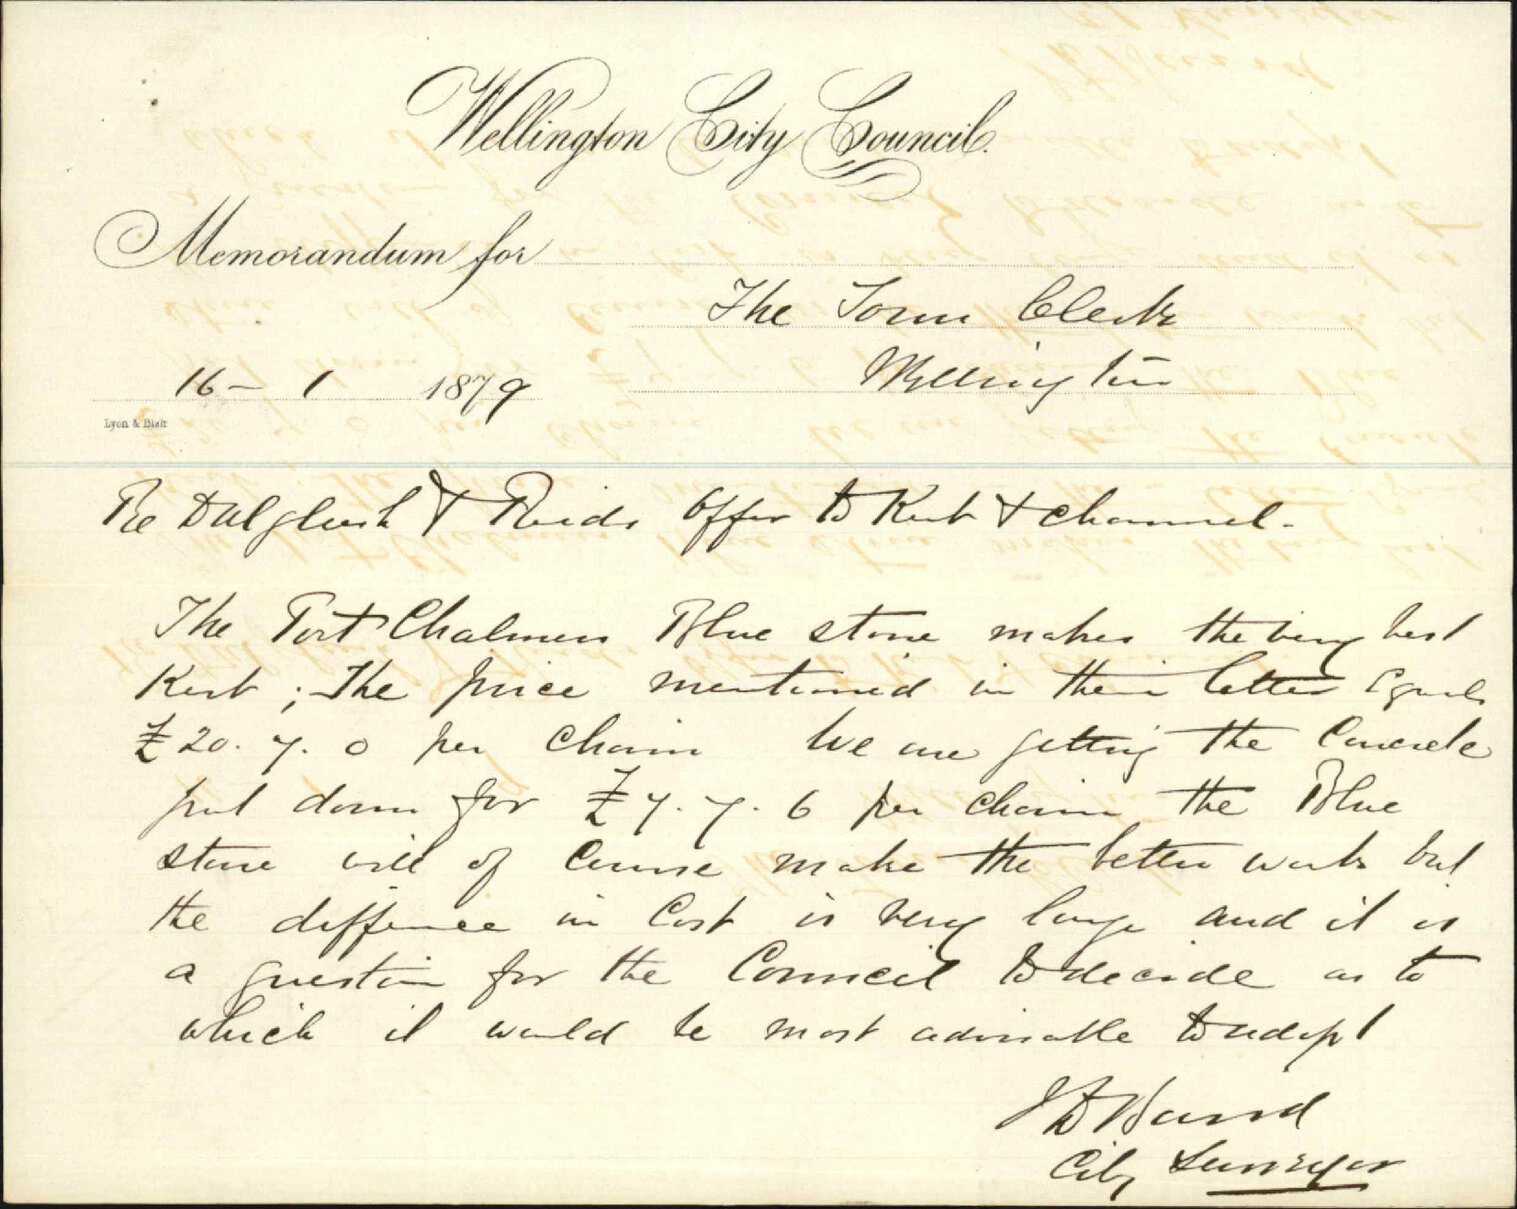 Wellington City Council.
Memorandum for
The Town Clerk
Wellington
16 - 1 1879
Lyon & Blair
Re Dalgliesh & Reids offer to Kerb & channel -
The Port Chalmers Blue stone makes the very best
Kerb ; The price mentioned in their letter Equals
£20. 7. 0 per chain We are getting the Concrete
put down for £7. 7. 6 per chain the Blue
stone will of Course make the better work but
the difference in Cost is very large and it is
a question for the Council to decide as to
which it would be most advisable to adopt
J D Baird
City Surveyor